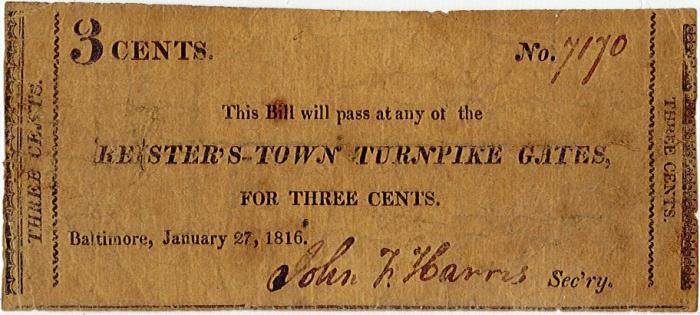 3 CENTS.
No. 7170
THREE CENTS.
This Bill will pass at any of the
REISTER'S-TOWN TURNPIKE GATES,
FOR THREE CENTS.
Baltimore, January 27, 1816.
John F. Harris Sec'ry.
THREE CENTS.